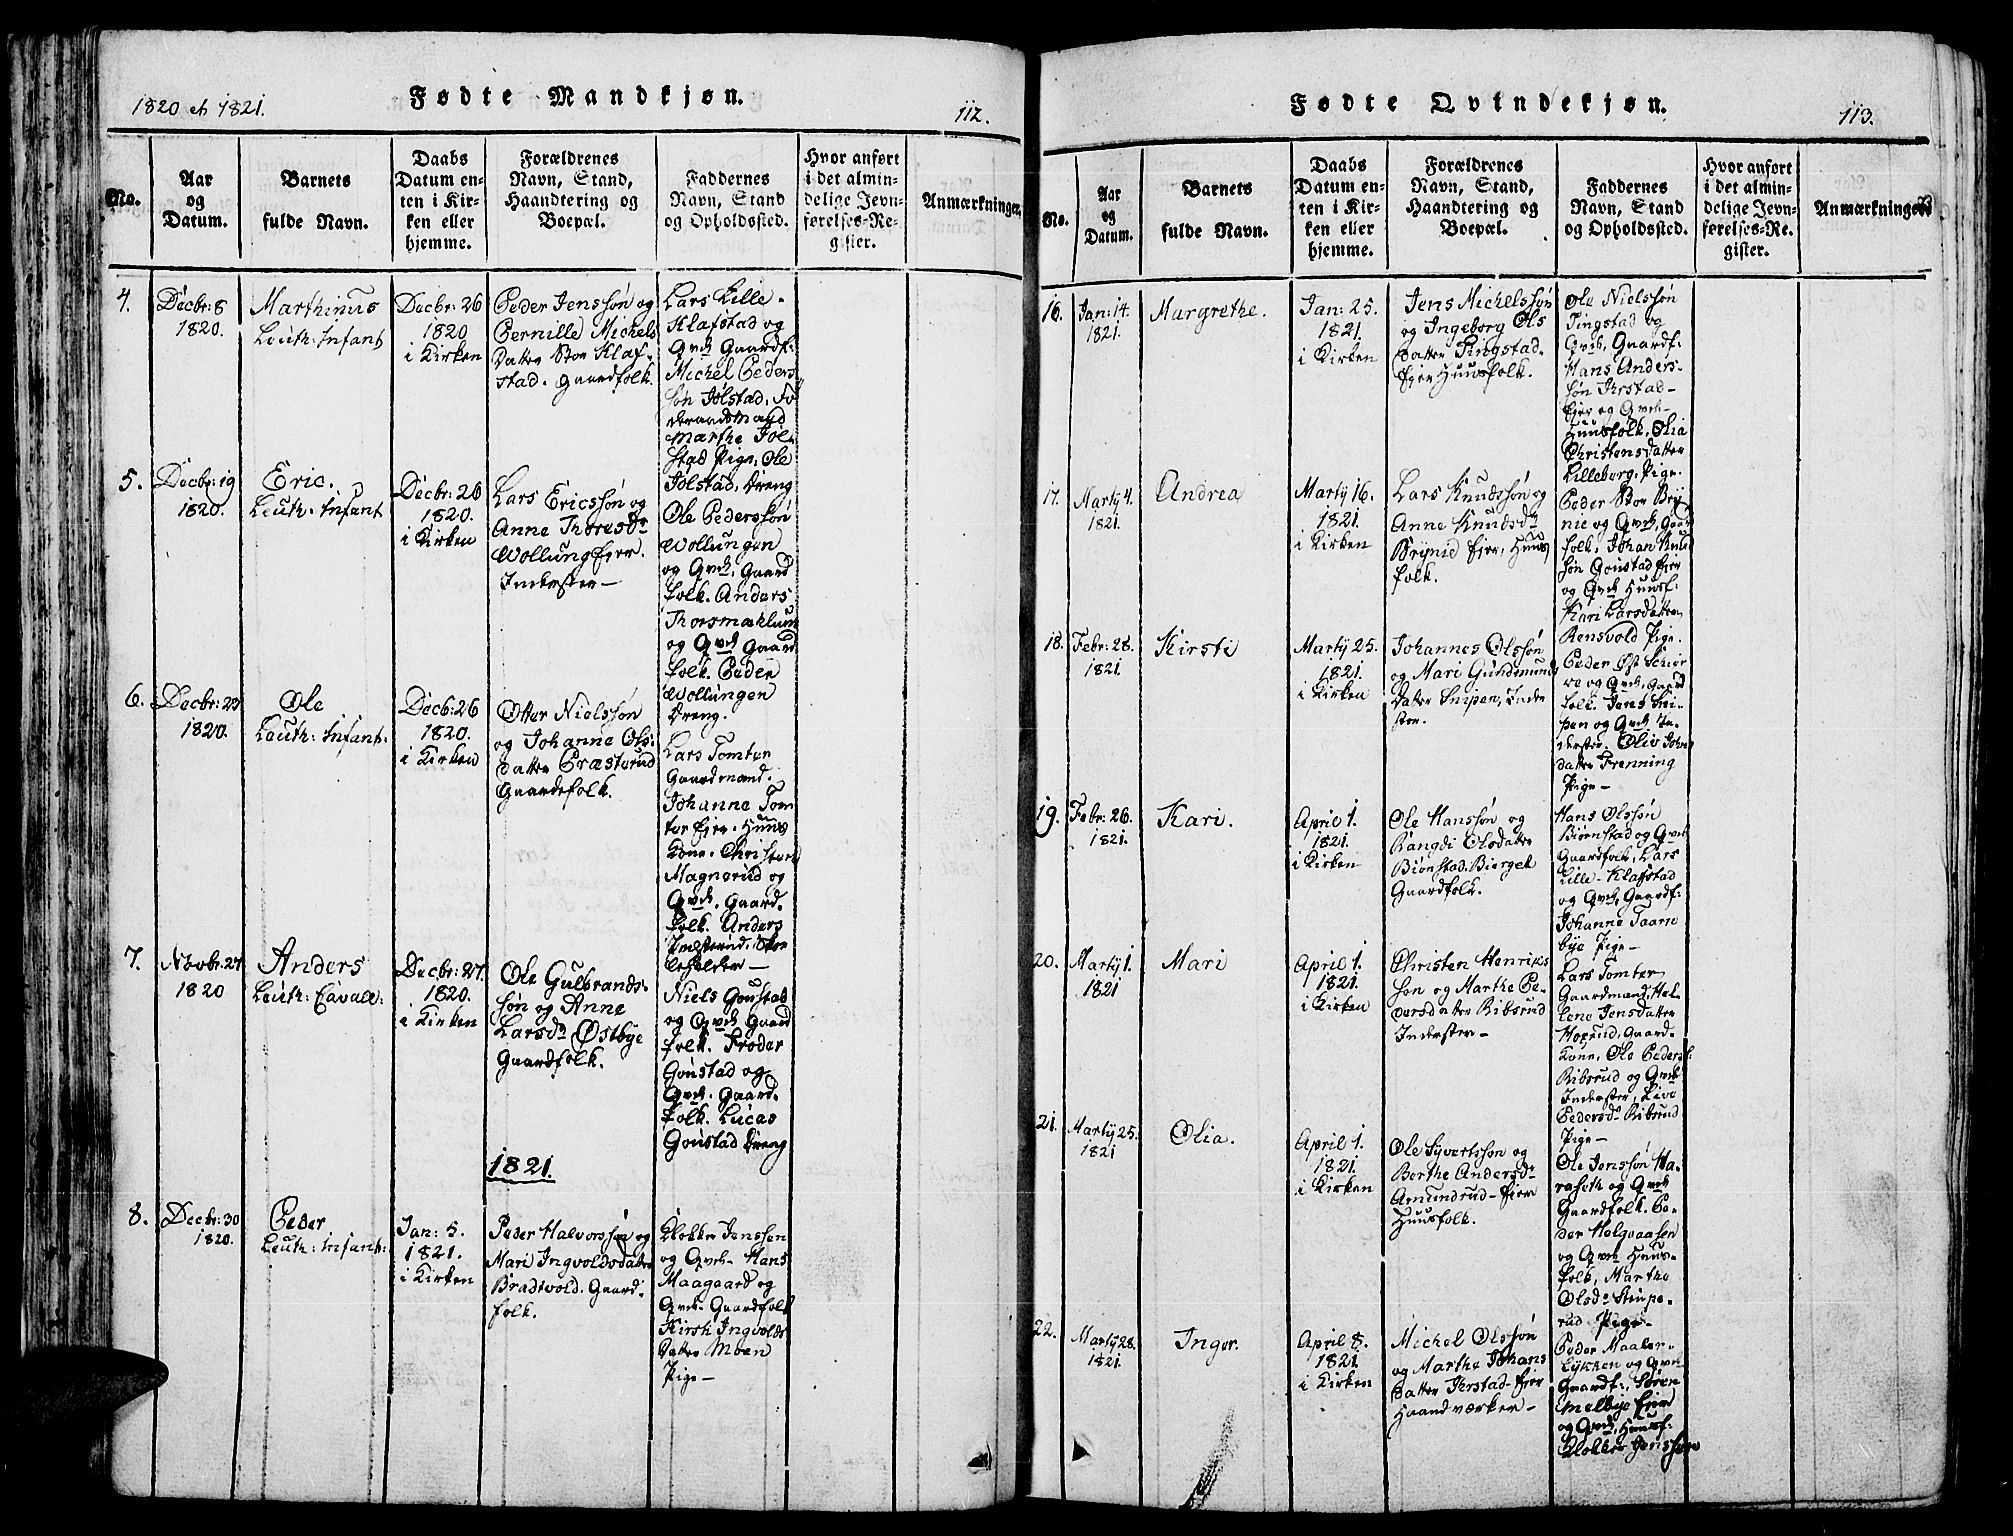 1820 et 1821.
Fødte Mandkjøn.
112.
No.
Aar
og
Datum.
Barnets
fulde Navn.
Daabs
Datum en-
ten i Kir-
ken eller
hjemme.
Forældrenes
Navn, Stand,
Haandtering og
Boepæl.
Faddernes
Navn, Stand
og Opholdssted.
Hvor anført
i det almin-
delige Jevn-
førelses-Re-
gister.
Anmærkninger.
4.
Decbr: 8
1820.
Marthinus
Leuth: Infant
Decbr: 26
1820
i Kirken
Peder Jenssøn og
Pernille Michels
Datter Stor Klaf-
stad. Gaardfolk.
Lars Lille-
Klafstad og
Qvd. Gaardf:
Michel Peders
søn Jølstad, Fø
deraadsmand
Marthe Jøl-
stad Pige, Ole
Jølstad, Dreng
5.
Decbr: 19
1820.
Eric.
Leuth: Infant
Decbr: 26
1820.
i Kirken
Lars Ericssøn og
Anne Thoresdr
Wollung Ejer.
Inderster—
Ole Pederssøn
Wollungen
og Qvd. Gaard
folk. Anders
Thorsmæhlum
og Qvd. Gaard
folk. Peder
Wollungen
Dreng.
6.
Decbr: 23
1820.
Ole
Leuth: Infant:
Decb: 26
1820.
i Kirken
Otter Nielssøn
og Johanne Ols:
datter Præsterud
Gaardefolk.
Lars Tomter
Gaardmand.
Johanne Tom
ter Ejer. Huus
Kone. Christen
Magnerud og
Qvd. Gaard.
folk. Anders
Præsterud. Skoe
leholder—
7.
Novbr. 27
1820
Anders
Leuth: Cavall:
Decbr: 27.
1820.
i Kirken
Ole Gulbrands-
søn og Anne
Larsdr Østbye
Gaardfolk.
Niels Goustad
og Qvd. Gaard
folk. Froder
Goustad og
Qvd. Gaard.
folk. Lucas
Goustad Dreng
1821.
8.
Decbr: 30
1820.
Peder
Leuth: Infant:
Jan: 5.
1821.
i Kirken
Peder Halvorssøn og
Mari Ingvoldsdatter
Bradvold. Gaard-
folk.
Klokker Jenssen
og Qvd. Hans
Maagaard og
Qvd. Gaardfolk
Kirsti Ingvolds
Datter Moen
Pige—
Fødte Qvindekjøn.
113.
No.
Aar
og
Datum.
Barnets
fulde Navn.
Daabs
Datum en-
ten i Kir-
ken eller
hjemme.
Forældrenes
Navn, Stand,
Haandtering og
Boepæl.
Faddernes
Navn, Stand
og Opholdssted.
Hvor anført
i det almin-
delige Jevn-
førelses-Re-
gister.
Anmærkninger
16.
Jan: 14.
1821.
Margrethe.
Jan: 25.
1821.
i Kirken
Jens Michelssøn
og Ingeborg Ols
datter Pingstad-
Ejer Huusfolk.
Ole Nielssøn
Pingstad og
Qvd. Gaardf:
Hans Anders-
søn Ihrstad-
Ejer og Qvd.-
Huusfolk, Olia
Christensdatter
Lilleborg, Pige.
17.
Martÿ 4.
1821.
Andrea
Martÿ 16.
1821.
i Kirken
Lars Knudssøn og
Anne Knudsdr
Brÿnid Ejer, Huus
folk.
Peder Stor Brÿ
nie og Qvd. Gaard
folk, Johan Knud
søn Goustad Ejer
og Qvd. Huusf:
Kari Larsdatter
Rensvold Pige.
18.
Febr: 28.
1821.
Kirsti
Martÿ 25.
1821.
i Kirken
Johannes Olssøn
og Mari Gundmunds
datter Snipen, Inder
ster.
Peder Øst Schior
re og Qvd. Gaard
folk. Jens Sni-
pen og Qvd. In
derster. Oliv Johns
datter Frenning
Pige—
19.
Febr: 26.
1821.
Kari.
April 1.
1821.
i Kirken
Ole Hanssøn og
Rangdi Olsdatter
Biønstad Bierget
Gaardfolk.
Hans Olssøn
Biørnstad og Qvd.
Gaardfolk, Lars
Lille-Klafstad
og Qvd. Gaardf:
Johanne Taarn
bye Pige—
20.
Martÿ 1.
1821
Mari
April 1.
1821.
i Kirken
Christen Henriks
søn og Marthe Pe-
dersdatter Ribsrud
Inderster—
Lars Tomter
Gaardmand, Hel-
lene Jensdatter
Hoxrud, Gaard-
Kone, Ole Pederss:
Ribsrud og Qvd.
Inderster, Live
Pedersdr Ribsrud
Pige—
21.
Martÿ 25.
1821
Olia.
April 1.
1821.
i Kirken
Ole Syvertssøn og
Berthe Andersdr
Amundrud-Ejer
Huusfolk.
Ole Jenssøn Ha-
raseth og Qvd.
Gaardfolk. Pe-
der Helgeaasen
og Qvd. Huus-
folk, Marthe
Olsdr Stupe-
rud Pige—
22.
Martÿ 28.
1821.
Inger.
April 8.
1821.
i Kirken
Michel Olssøn
og Marthe Johans
datter Ihrstad-Ejer
Haandværker—
Peder Maaler-
Løkken og Qvd.
Gaardf:, Søren
Melbye Ejer
og Qvd. Huusf:
Klokker Jenssen